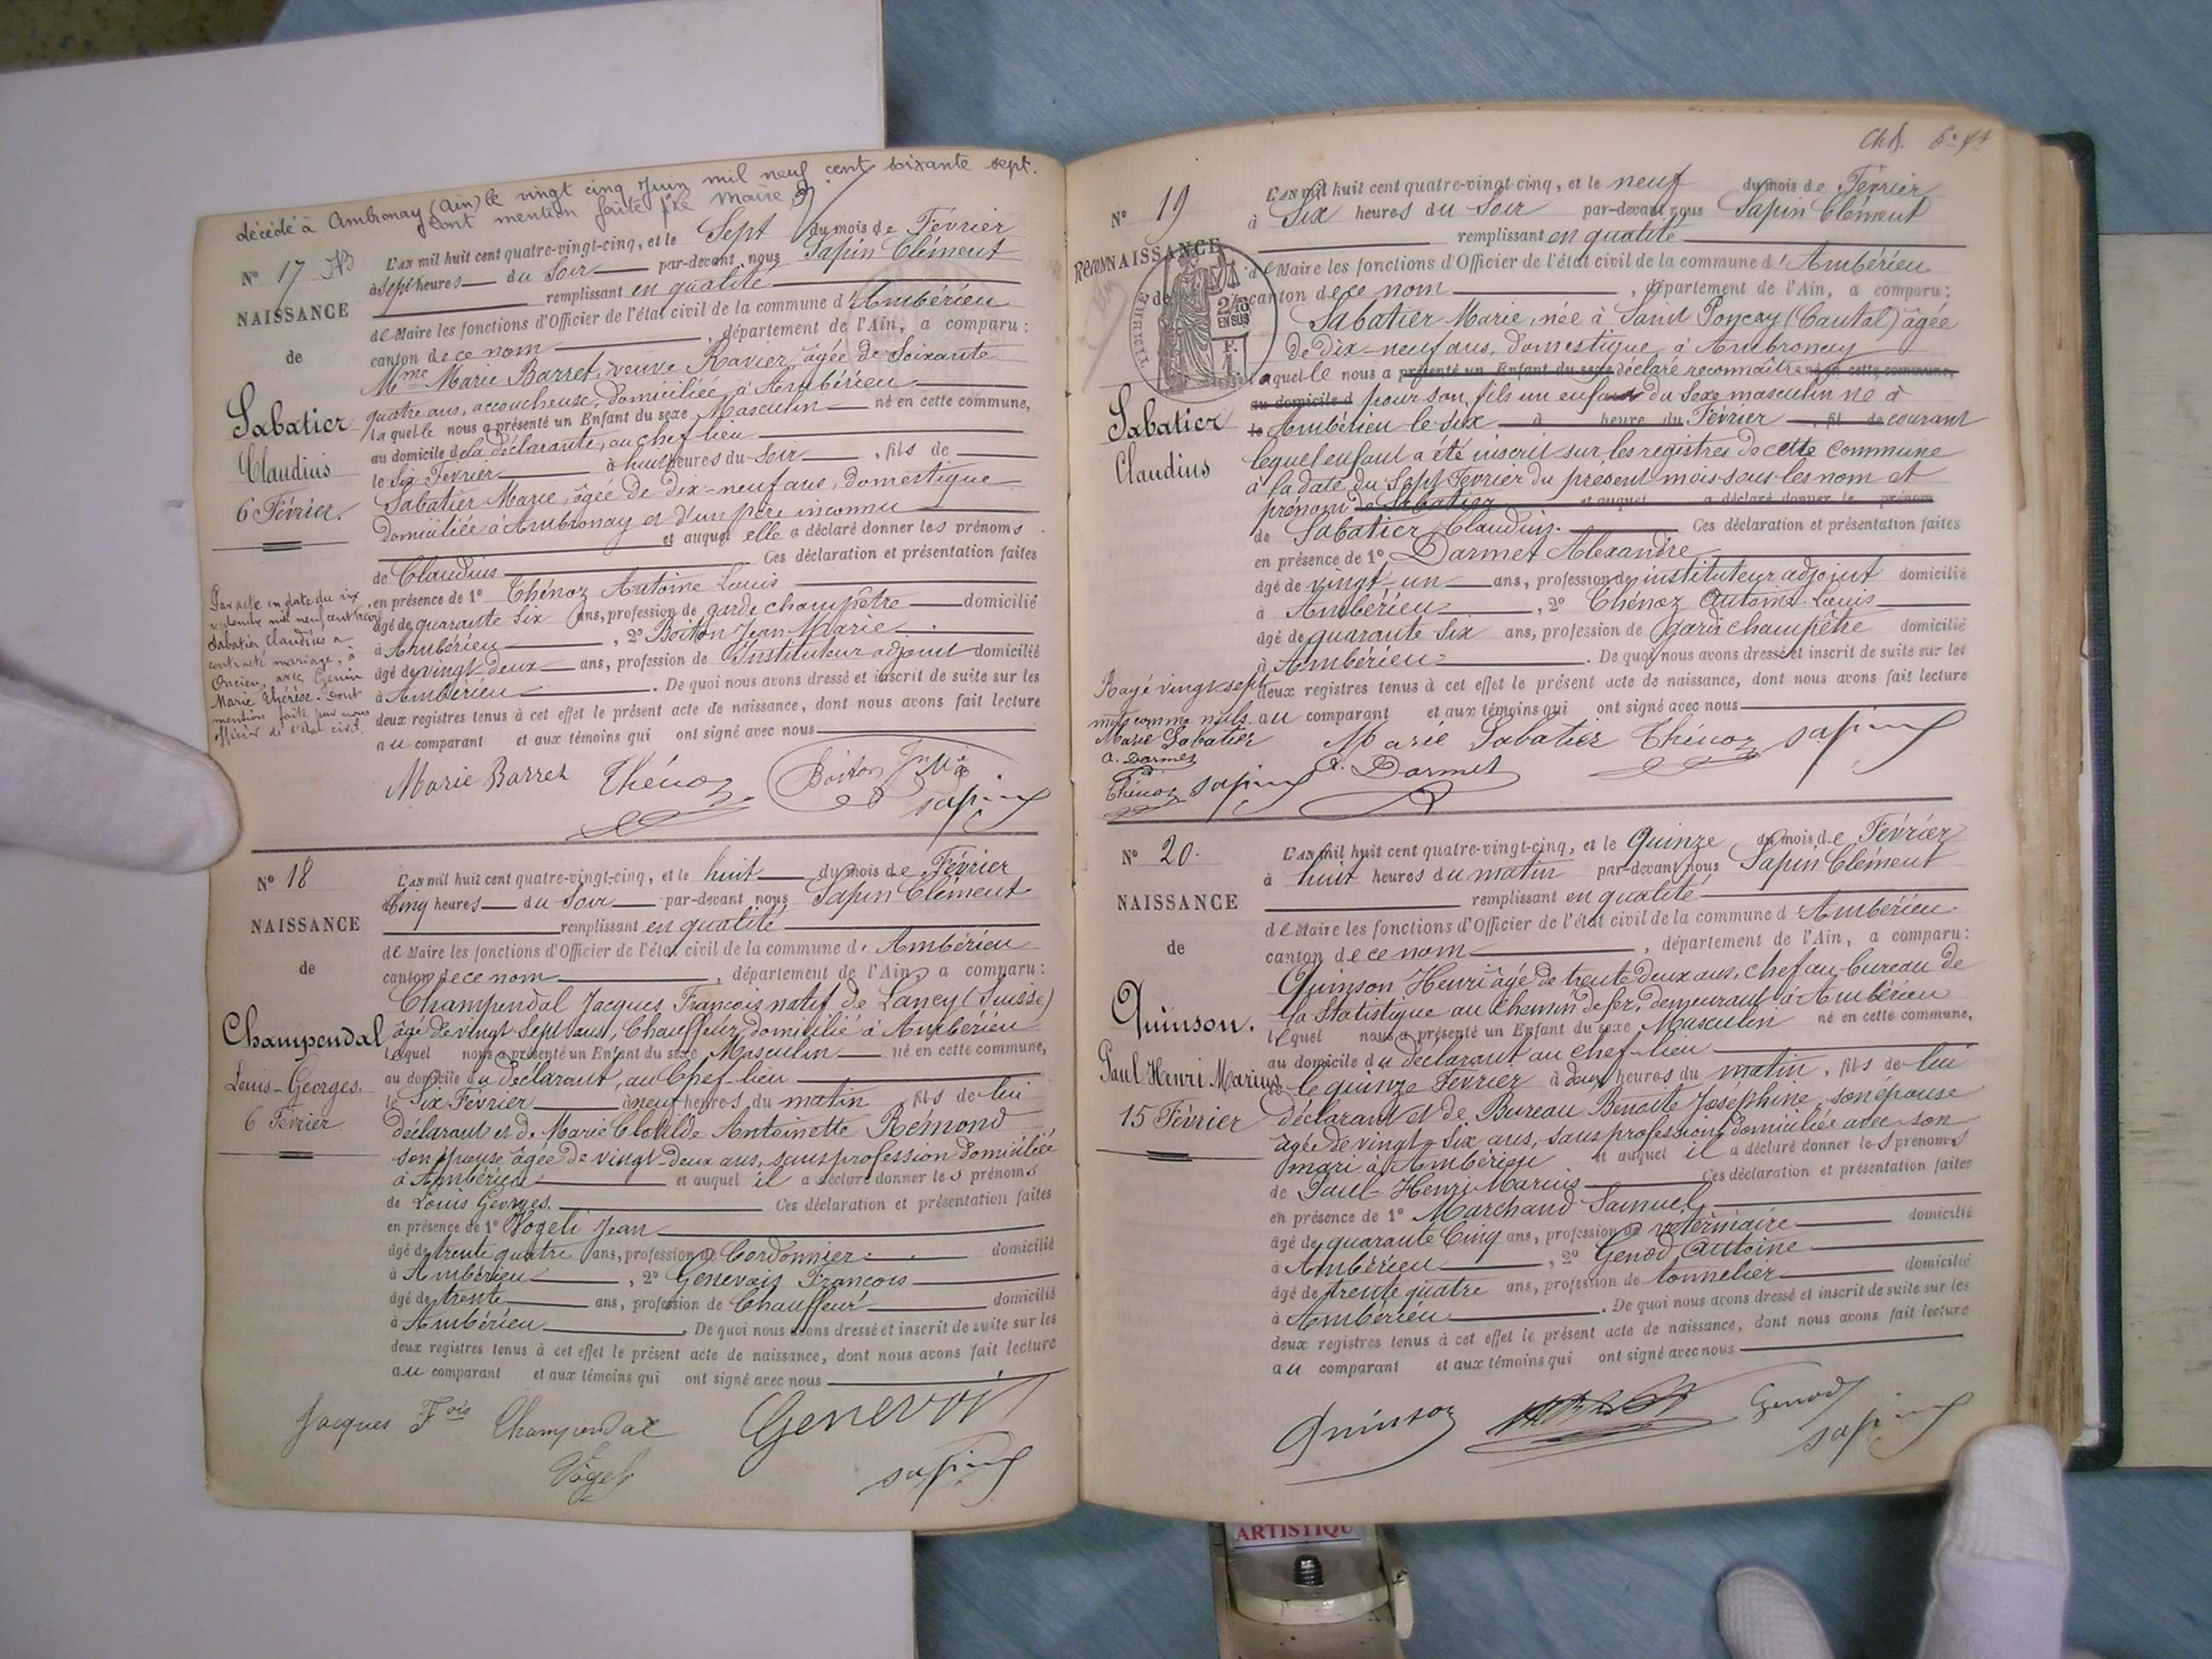 décédé à Ambronay (Ain) le vingt cinq Juin mil neuf cent soixante sept.
dont mention faite p. le Maire
N° 17
NAISSANCE
de
Sabatier
Claudius
6 Février.
Par acte en date du six
septembre mil neuf cent
Sabatier Claudius a
contracté mariage, à
Oncieu, avec Genin
Marie Thérèse. Dont
mention faite par nous
officier de l'état civil.
L'AN mil huit cent quatre-vingt-cinq, et le Sept du mois de Février
à sept heures du Soir par-devant nous Sapin Clément
remplissant en qualité
de Maire les fonctions d'Officier de l'état civil de la commune d'Ambérieu
canton de ce nom, département de l'Ain, a comparu:
Mme Marie Barret, veuve Ravier, âgée de Soixante
quatre ans, accoucheuse, domiciliée à Ambérieu
laquelle nous a présenté un Enfant du sexe Masculin né en cette commune,
au domicile de la déclarante, au chef lieu
le Six Février à huit heures du Soir, fils de
Sabatier Marie, âgée de dix-neuf ans, domestique
domiciliée à Ambronay et d'un père inconnu
et auquel elle a déclaré donner les prénoms
de Claudius Ces déclaration et présentation faites
en présence de 1° Thénoz Antoine Louis
âgé de quarante Six ans, profession de garde champêtre domicilié
à Ambérieu, 2° Boiton Jean Marie
âgé de vingt deux ans, profession de Instituteur adjoint domicilié
à Ambérieu. De quoi nous avons dressé et inscrit de suite sur les
deux registres tenus à cet effet le présent acte de naissance, dont nous avons fait lecture
au comparant et aux témoins qui ont signé avec nous
Marie Barret Thénoz Boiton Jn Mie
Sapin
N° 18
NAISSANCE
de
Champendal
Louis-Georges.
6 Février.
L'AN mil huit cent quatre-vingt-cinq, et le huit du mois de Février
à Cinq heures du Soir par-devant nous Sapin Clément
remplissant en qualité
de Maire les fonctions d'Officier de l'état civil de la commune d'Ambérieu
canton de ce nom, département de l'Ain, a comparu:
Champendal Jacques François natif de Lancy (Suisse)
âgé de vingt Sept ans, Chauffeur, domicilié à Ambérieu
lequel nous a présenté un Enfant du sexe Masculin né en cette commune,
au domicile du déclarant, au Chef lieu
le Six Février à neuf heures du matin fils de lui
déclarant et de Marie Clotilde Antoinette Rémond
son épouse âgée de vingt-deux ans, sans profession domiciliée
à Ambérieu et auquel il a déclaré donner les prénoms
de Louis Georges. Ces déclaration et présentation faites
en présence de 1° Vogeli Jean
âgé de trente quatre ans, profession de Cordonnier domicilié
à Ambérieu, 2° Genevois François
âgé de trente ans, profession de Chauffeur domicilié
à Ambérieu. De quoi nous avons dressé et inscrit de suite sur les
deux registres tenus à cet effet le présent acte de naissance, dont nous avons fait lecture
au comparant et aux témoins qui ont signé avec nous
Jacques Fois Champendal Genevois
Vogeli Sapin
N° 19
RECONNAISSANCE
de
TIMBRE
2/10
EN SUS
F.
Sabatier
Claudius
Rayé vingt sept
mots comme nuls.
Marie Sabatier
A. Darmet
Thénoz Sapin
L'AN mil huit cent quatre-vingt-cinq, et le neuf du mois de Février
à Six heures du Soir par-devant nous Sapin Clément
remplissant en qualité
de Maire les fonctions d'Officier de l'état civil de la commune d'Ambérieu
canton de ce nom, département de l'Ain, a comparu:
Sabatier Marie, née à Saint Poncay (Cantal) âgée
de dix-neuf ans, domestique à Ambronay
laquelle nous a présenté un Enfant du sexe déclaré reconnaître né en cette commune,
au domicile d pour son fils un enfant du Sexe masculin né à
le Ambérieu le six à heure du Février, fil de courant
lequel enfant a été inscrit sur les registres de cette commune
à la date du Sept Février du présent mois sous les nom et
prénom de Sabatier et auquel a déclaré donner le prénom
de Sabatier Claudius. Ces déclaration et présentation faites
en présence de 1° Darmet Alexandre
âgé de vingt-un ans, profession de instituteur adjoint domicilié
à Ambérieu, 2° Thénoz Antoine Louis
âgé de quarante Six ans, profession de garde champêtre domicilié
à Ambérieu. De quoi nous avons dressé et inscrit de suite sur les
deux registres tenus à cet effet le présent acte de naissance, dont nous avons fait lecture
au comparant et aux témoins qui ont signé avec nous
Marie Sabatier Thénoz Sapin
A. Darmet
N° 20.
NAISSANCE
de
Quinson.
Paul Henri Marius
15 Février
L'AN mil huit cent quatre-vingt-cinq, et le Quinze du mois de Février
à huit heures du matin par-devant nous Sapin Clément
remplissant en qualité
de Maire les fonctions d'Officier de l'état civil de la commune d'Ambérieu
canton de ce nom, département de l'Ain, a comparu:
Quinson Henri âgé de trente deux ans, chef au bureau de
la Statistique au Chemin de fer, demeurant à Ambérieu
lequel nous a présenté un Enfant du sexe Masculin né en cette commune,
au domicile du déclarant au chef-lieu
le quinze Février à deux heures du matin, fils de lui
déclarant et de Bureau Benoite Joséphine, son épouse
âgée de vingt-six ans, sans profession, domiciliée avec son
mari à Ambérieu et auquel il a déclaré donner les prénoms
de Paul-Henri Marius Ces déclaration et présentation faites
en présence de 1° Marchand Samuel
âgé de quarante Cinq ans, profession de vétérinaire domicilié
à Ambérieu, 2° Genod Antoine
âgé de trente quatre ans, profession de tonnelier domicilié
à Ambérieu. De quoi nous avons dressé et inscrit de suite sur les
deux registres tenus à cet effet le présent acte de naissance, dont nous avons fait lecture
au comparant et aux témoins qui ont signé avec nous
Quinson Genod
Sapin
ARTISTIQU